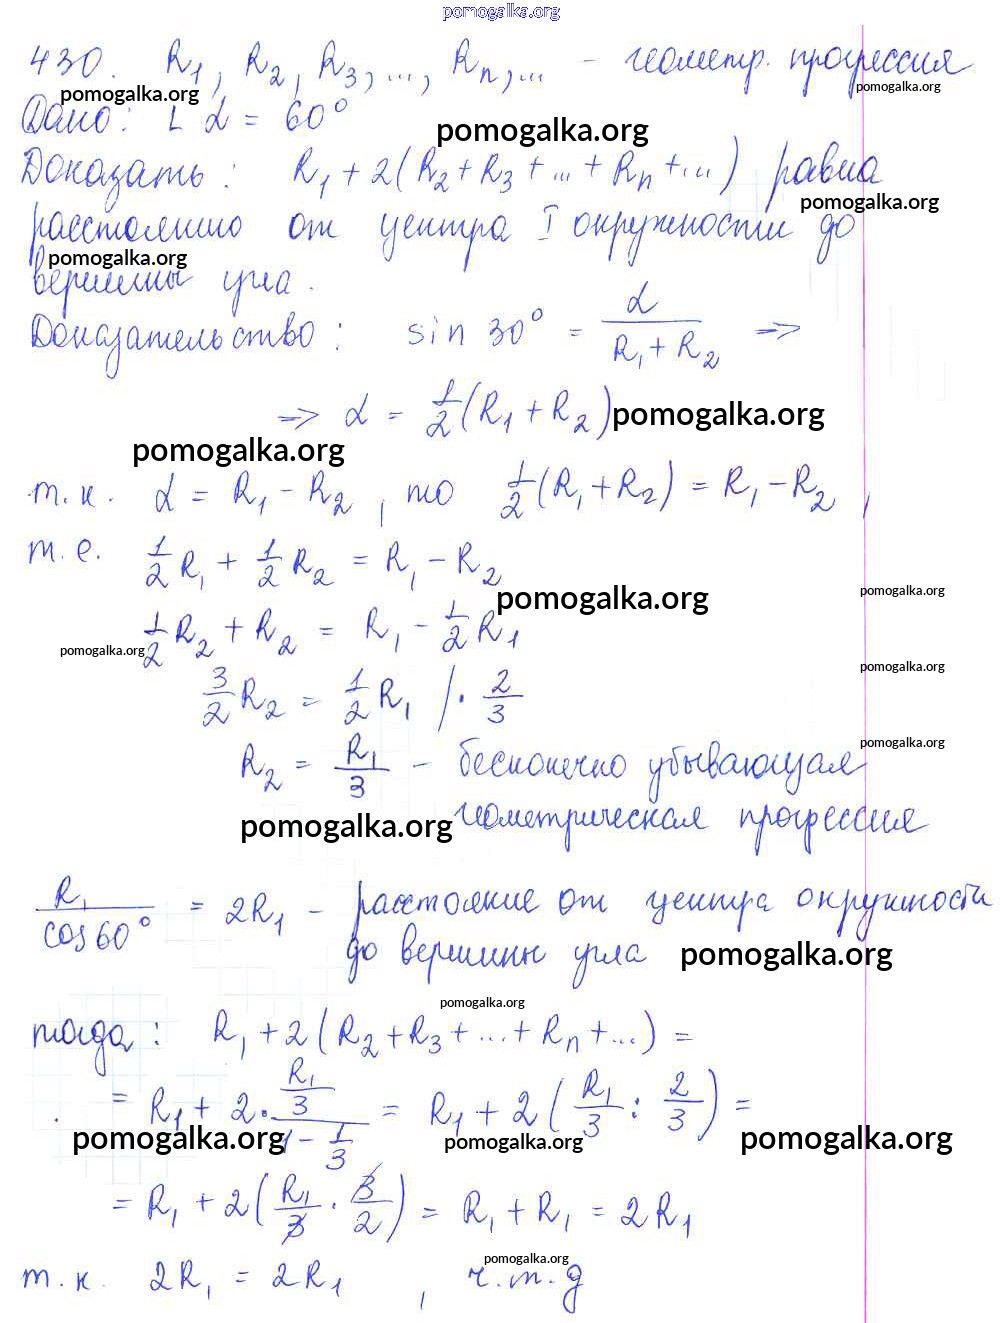 pomogalka.org
430. R₁, R₂, R₃, ..., Rₙ, ... - геометр. прогрессия
pomogalka.org pomogalka.org
Дано: ∟α = 60°
pomogalka.org
Доказать: R₁ + 2(R₂ + R₃ + ... + Rₙ + ...) равна
pomogalka.org
расстоянию от центра I окружности до
pomogalka.org
вершины угла.
Доказательство: sin 30° = α/(R₁ + R₂) =>
=> α = 1/2(R₁ + R₂) pomogalka.org
pomogalka.org
т.к. α = R₁ - R₂, то 1/2(R₁ + R₂) = R₁ - R₂,
т.е. 1/2 R₁ + 1/2 R₂ = R₁ - R₂
pomogalka.org pomogalka.org
1/2 R₂ + R₂ = R₁ - 1/2 R₁
pomogalka.org pomogalka.org
3/2 R₂ = 1/2 R₁ /· 2/3
pomogalka.org
R₂ = R₁/3 - бесконечно убывающая
pomogalka.org геометрическая прогрессия
R₁/cos60° = 2R₁ - расстояние от центра окружности
до вершины угла pomogalka.org
pomogalka.org
тогда: R₁ + 2(R₂ + R₃ + ... + Rₙ + ...) =
= R₁ + 2 · (R₁/3)/(1 - 1/3) = R₁ + 2(R₁/3 : 2/3) =
pomogalka.org pomogalka.org pomogalka.org
= R₁ + 2(R₁/3 · 3/2) = R₁ + R₁ = 2R₁
pomogalka.org
т.к. 2R₁ = 2R₁, ч.т.д